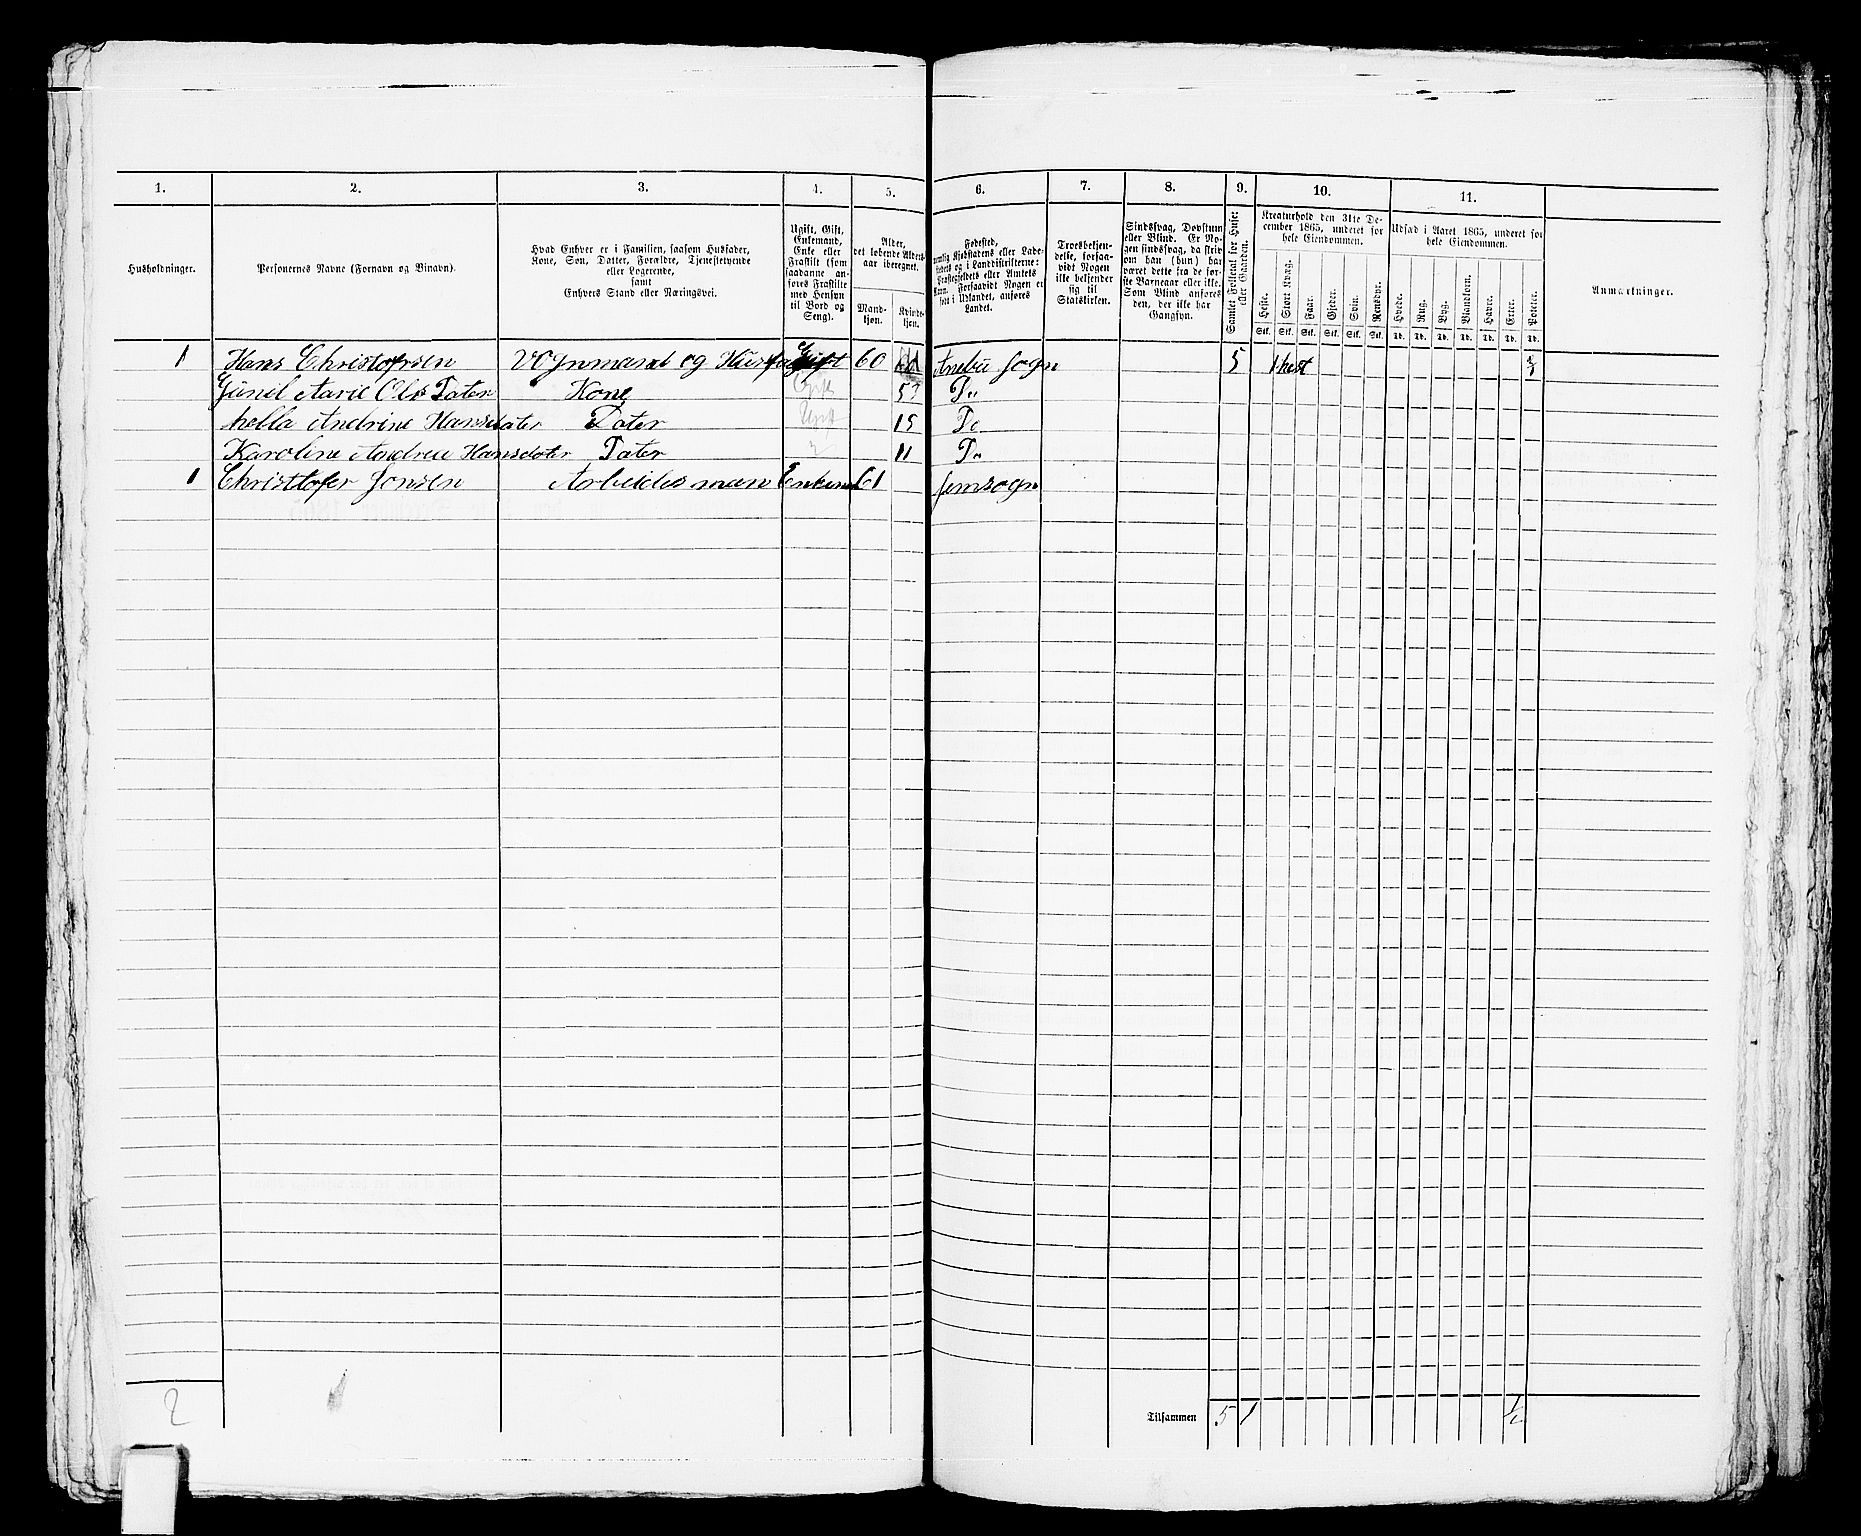 1. 2. 3. 4. 5. 6. 7. 8. 9. 10. 11.
Husholdninger.
Personernes Navne (Fornavn og Binavn).
Hvad Enhver er i Familien, saasom Husfader,
Kone, Søn, Datter, Forældre, Tjenestetyende
eller Logerende,
samt
Enhvers Stand eller Næringsvei.
Ugift, Gift,
Enkemand,
Enke eller
Fraskilt (som
saadanne an-
føres Fraskilte
med Hensyn
til Bord og
Seng).
Alder,
det løbende Alders-
aar iberegnet.
Mand-
kjøn.
Kvinde-
kjøn.
Fødested,
nemlig Kjøbstadens eller Lade-
stedets og i Landdistrikterne:
Præstegjeldets eller Amtets
Navn. Forsaavidt Nogen er
født i Udlandet, anføres
Landet.
Troesbekjen-
delse, forsaa-
vidt Nogen
ikke bekjender
sig til
Statskirken.
Sindssvag, Døvstum
eller Blind. Er No-
gen sindssvag, da skriv
om han (hun) har
været dette fra de før-
ste Barneaar eller ikke.
Som Blind anføres
den, der ikke har
Gangsyn.
Samlet Folketal for Huset
eller Gaarden.
Kreaturhold den 31te De-
cember 1865, underet for
hele Eiendommen.
Heste. Stort Kvæg. Faar. Gjeder. Svin. Rensdyr.
Stk. Stk. Stk. Stk. Stk. Stk.
Udsæd i Aaret 1865, underet for
hele Eiendommen.
Hvede. Rug. Byg. Blandkorn. Havre. Erter. Poteter.
Td. Td. Td. Td. Td. Td. Td.
Anmærkninger.
1 Hans Christofrsen Gift 60 Anebu sogn 5 1 hest ½
Gunil Marie Ols Dater Kone Gift 53 Do
Andrine Hansdater Dater Ugift 15 Do
Karoline Andrea Hansdater Dater 11 Do
1 Christtofer Jonsen Arbeidesman 61 semsogn
2
Tilsammen 5 1 ½